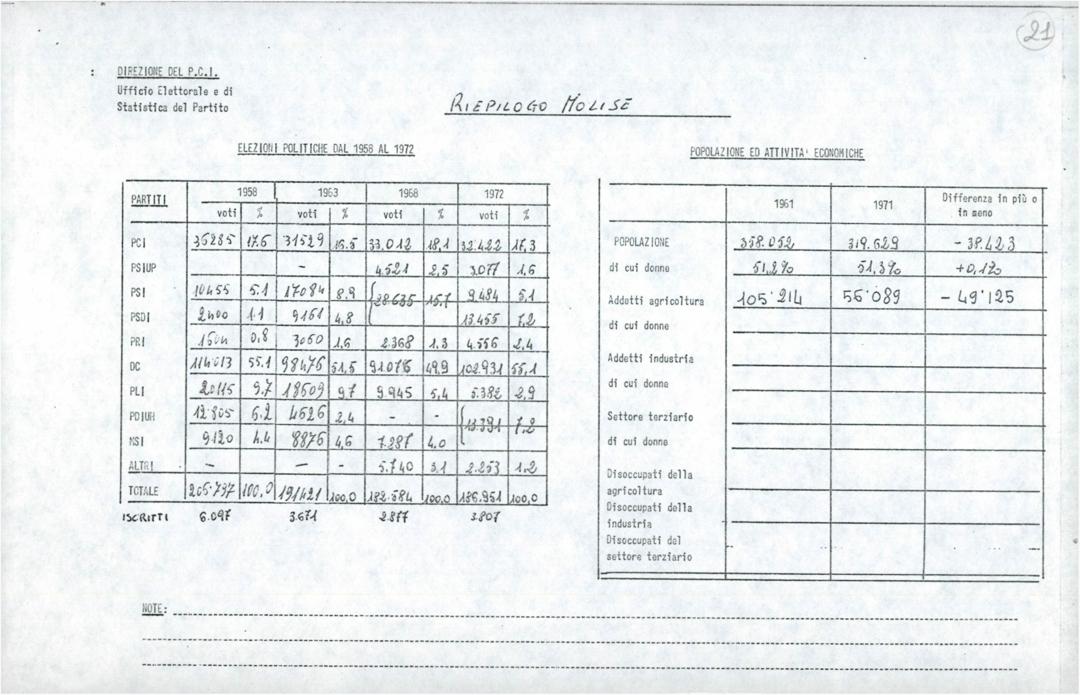 21
DIREZIONE DEL P.C.I.
Ufficio Elettorale e di
Statistica del Partito
RIEPILOGO MOLISE
ELEZIONI POLITICHE DAL 1958 AL 1972
PARTITI 1958 1963 1968 1972
voti % voti % voti % voti %
PCI 36285 17,6 31529 16.5 33.012 18,1 32.422 17,3
PSIUP – 4.521 2,5 3.077 1,6
PSI 10455 5.1 17084 8.9 28.635 15.7 9.484 5.1
PSDI 2400 1.1 9161 4,8 13.455 7,2
PRI 0.8 3060 1,6 2.368 1.3 4.556 2,4
DC 114013 55.1 98476 51,5 91.076 49,9 102.931 55,1
PLI 20115 9.7 18509 9,7 9.945 5,4 5.382 2,9
PDIUM 12.805 6.2 4626 2,4 - - 13.391 7.2
MSI 9120 4.4 8876 4,6 7.287 4.0
ALTRI – – - 5.740 3.1 2.253 1.2
TOTALE 205.797 100,0 191421 100,0 182.584 100,0 186.951 100,0
ISCRITTI 6.097 3.671 2.877 3.807
POPOLAZIONE ED ATTIVITA' ECONOMICHE
1961 1971 Differenza in più o
in meno
POPOLAZIONE 358.052 319.629 - 38.423
di cui donne 51,2% 51,3% +0,1%
Addetti agricoltura 105'214 56'089 - 49'125
di cui donne
Addetti industria
di cui donne
Settore terziario
di cui donne
Disoccupati della
agricoltura
Disoccupati della
industria
Disoccupati del
settore terziario
NOTE: